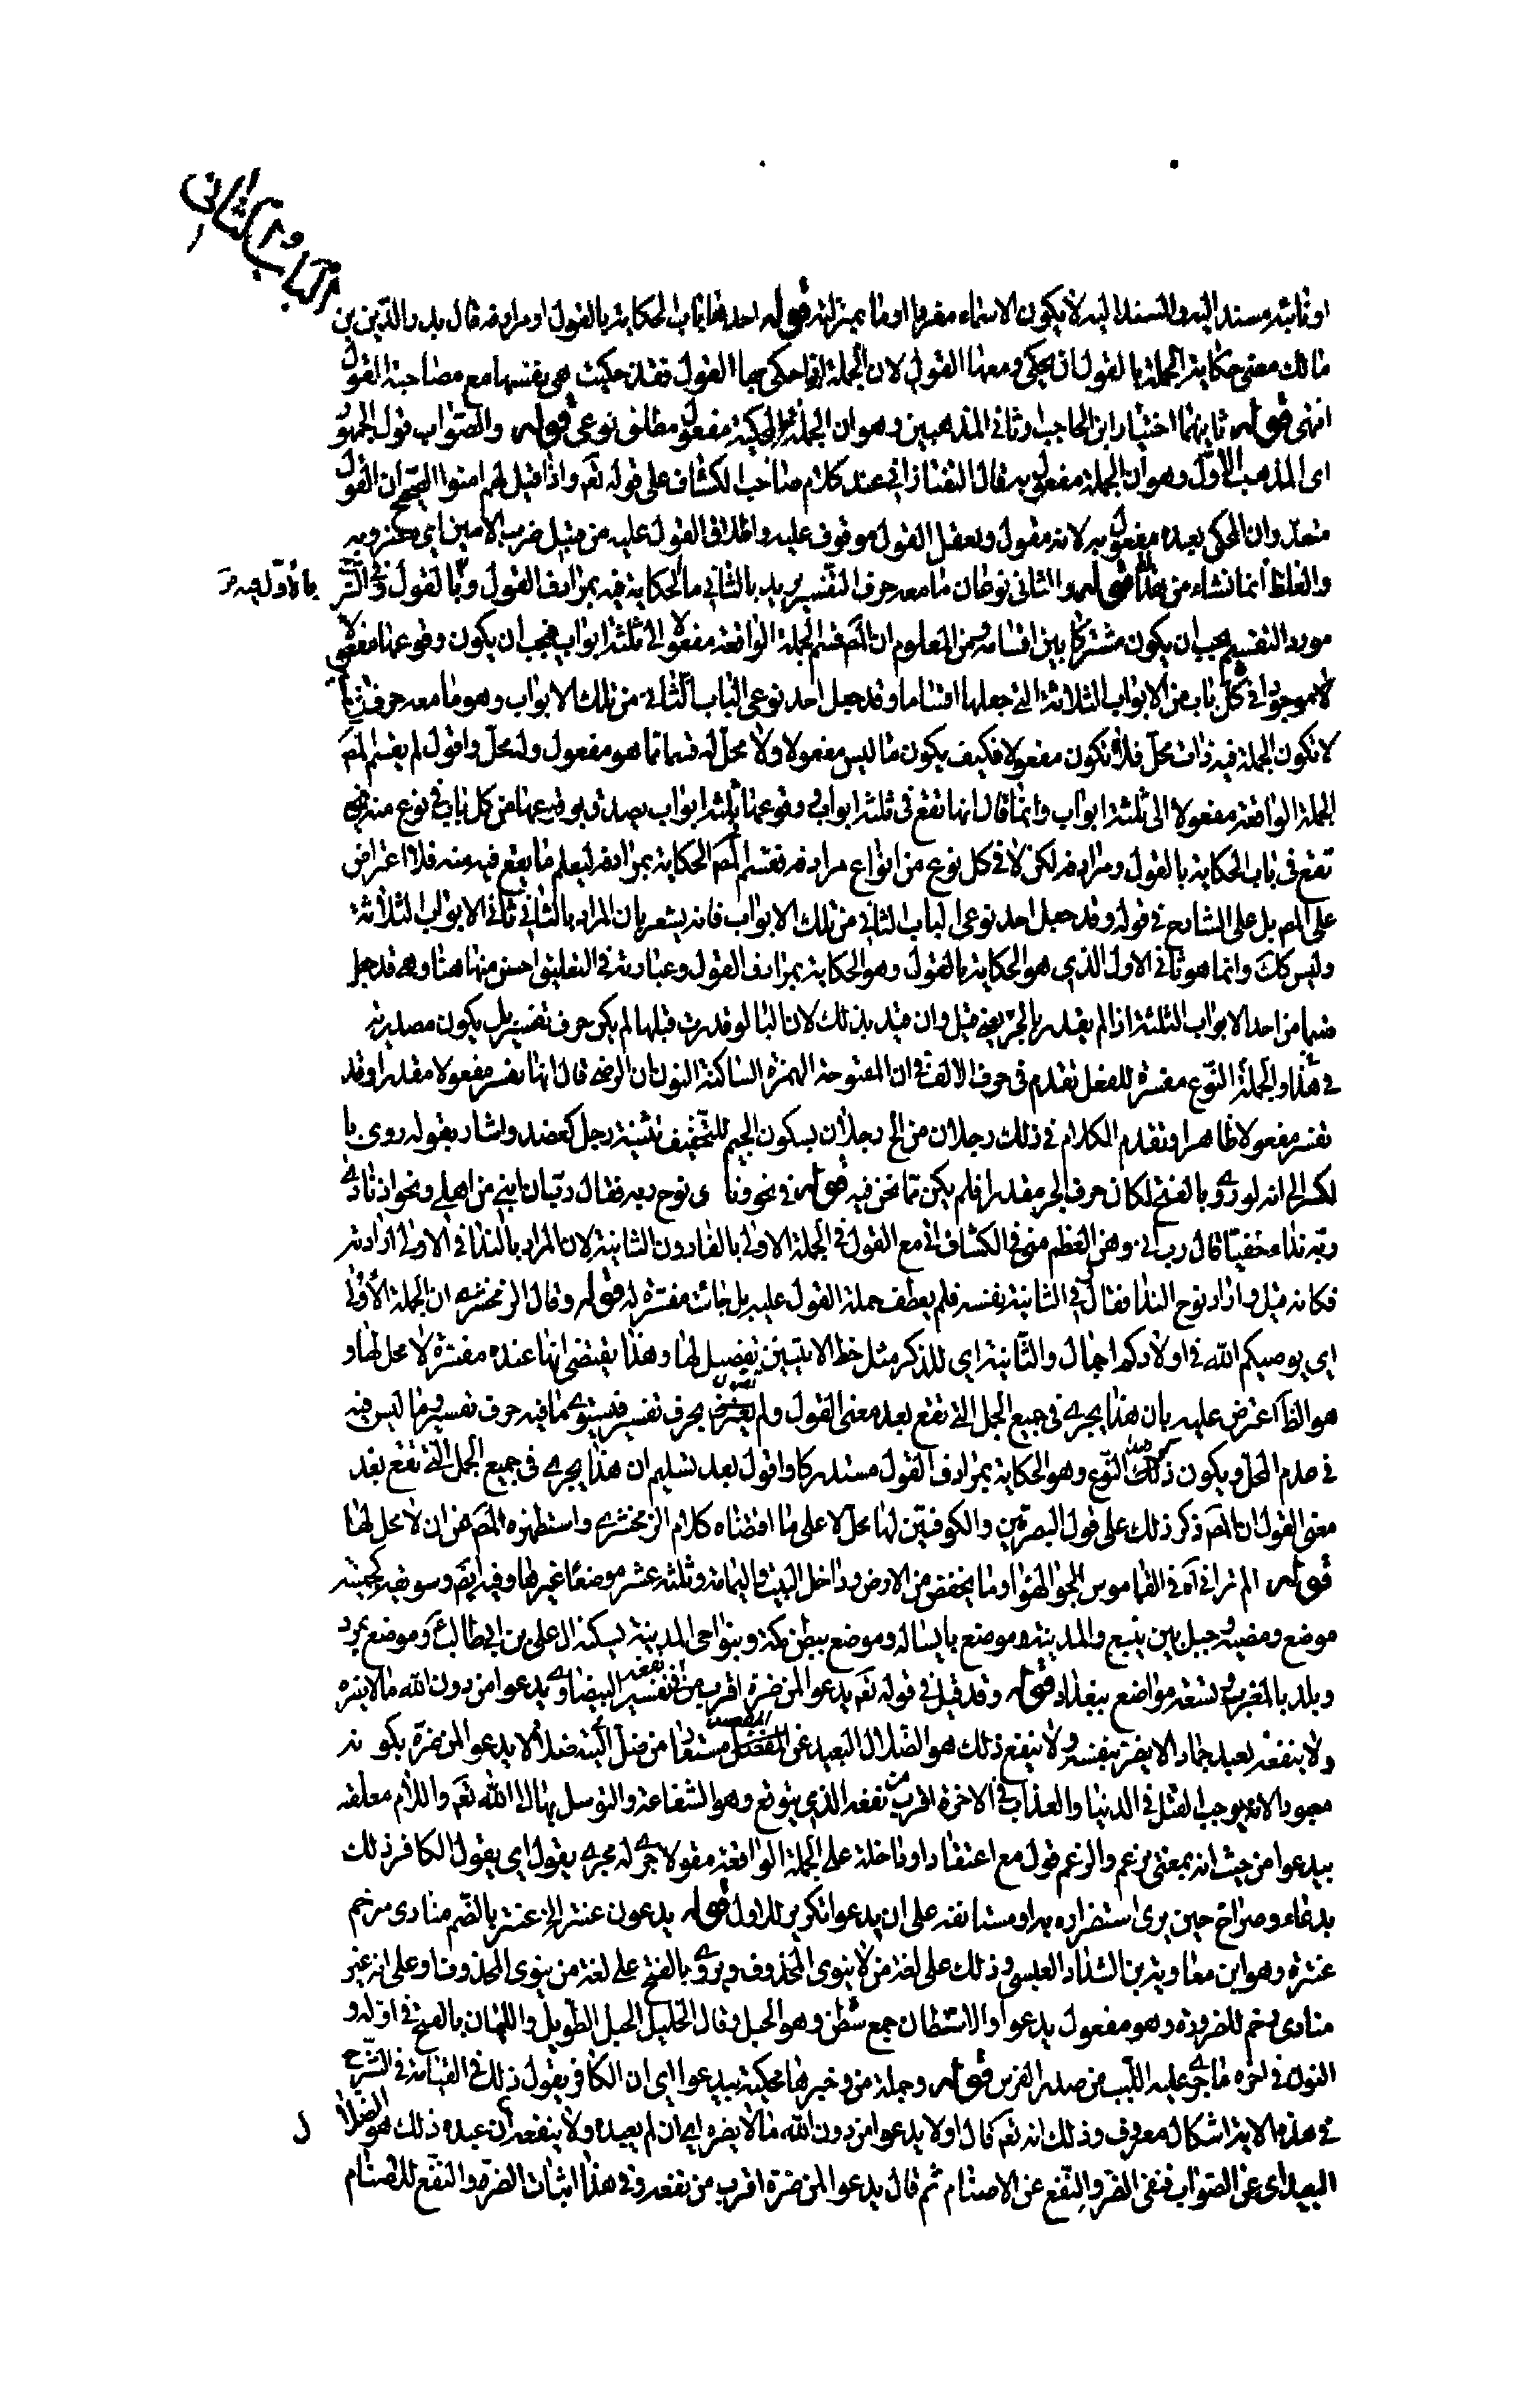 الباب الثاني
او نائبه مسند اليه والمسند اليه لا يكون الا سماء مفردا او ما بمنزلته قوله احدها باب الحكاية بالقول او مرادفه قال بدر الدين بن
مالك معنى حكاية الجملة بالقول ان يحكى ومعها القول لان الجملة اذا حكى بها القول فقد حكيت هي بنفسها مع مصاحبة القول
انتهى قوله ثانيهما اختيار ابن الحاجب وثاني المذهبين وهو ان الجملة المحكية مفعول مطلق نوعي قوله والصواب قول الجمهور
اى المذهب الاول وهو ان الجملة مفعول به قال التفتازاني عند كلام صاحب الكشاف على قوله تعم واذا قيل لهم امنوا الصحيح ان القول
متعد وان المحكى بعده مفعول به لانه مقول وتعقل القول موقوف عليه واطلاق القول عليه من قبيل ضرب الامير اي مضروبه
والغلط انما نشاء من هذا قوله والثاني نوعان ما معه حرف التفسير يريد بالثاني ما الحكاية فيه بمرادف القول وبالقول وفي الشرح
مورد التقسيم يجب ان يكون مشتركا بين اقسامه ومن المعلوم ان المصم قسم الجملة الواقعة مفعولا الى ثلثة ابواب فيجب ان يكون وقوعها مفعولا
موجودا في كل باب من الابواب الثلاثة التي جعلها اقساما وقد جعل احد نوعى الباب الثاني من تلك الابواب وهو ما معه حرف
لا تكون الجملة فيه ذات محل فلا تكون مفعولا فكيف يكون ما ليس مفعولا ولا محل له قسما مما هو مفعول وله محل واقول لم يقسم المصم
الجملة الواقعة مفعولا الى ثلثة ابواب وانما قال انها تقع في ثلثة ابواب ووقوعها بثلثة ابواب يصدق بوقوعها من كل باب في نوع منه
تقع في باب الحكاية بالقول ومرادفه لكن لا في كل نوع من انواع مرادفه فقسم المصم الحكاية بمرادفه ليعلم ما يقع فيه منه فلا اعتراض
على المصم بل على الشارح في قوله وقد جعل احد نوعى الباب الثاني من تلك الابواب فانه يشعر بان المراد بالثاني ثاني الابواب الثلاثة
وليس كك وانما هو ثاني الاول الذي هو الحكاية بالقول وهو الحكاية بمرادف القول وعبارته في التعليق احسن منها هنا وهى قد جعل
قسما من احد الابواب الثلثة اذا لم يقدر باء الجر يعني قبل وان قيد بذلك لان الباء لو قدرت قبلها لم يكن حرف تفسير بل يكون مصدرية
في هذا والجملة النوع مفسرة للفعل تقدم في حرف الالف في ان المفتوحة الهمزة الساكنة النون ان الرضي قال انها تفسر مفعولا مقدرا وقد
تفسر مفعولا ظاهرا وتقدم الكلام في ذلك رجلان من الخ رجلان بسكون الجيم للتخفيف تثنية رجل كعضد واشار بقوله روى با
لكسر الى انه لو روى بالفتح لكان حرف الجر مقدرا فلم يكن مما نحن فيه قوله في نحو ونادى نوح ربه فقال رب ان ابني من اهلي ونحو اذ نادى
ربه نداء خفيا قال رب اني وهن العظم مني في الكشاف اتى مع القول في الجملة الاولى بالفاء دون الثانية لان المراد بالنداء في الاولى ارادته
فكانه قيل واراد نوح النداء فقال وفي الثانية نفسه فلم يعطف جملة القول عليه بل جائت مفسرة له قوله وقال الزمخشري ان الجملة الاولى
اي يوصيكم الله في اولادكم اجمال والثانية اي للذكر مثل حظ الانثيين تفصيل لها وهذا يقتضي انها عنده مفسرة لا محل لها و
هو الظ اعترض عليه بان هذا يجرى في جميع الجمل التي تقع بعد معنى القول ولم يقترن بحرف تفسير فيستوى ما فيه حرف تفسير وما ليس فيه
في عدم المحل ويكون ذلك النوع وهو الحكاية بمرادف القول مستدركا واقول بعد تسليم ان هذا يجرى في جميع الجمل التي تقع بعد
معنى القول ان المصم ذكر ذلك على قول البصريين والكوفيين لها محل لا على ما اقتضاه كلام الزمخشري واستظهره المصم من ان لا محل لها
قوله الم تر اني اه في القاموس الجو الهواء وما يخفض من الارض وداخل البيت واليمامة وثلثة عشر موضعا غيرها وفيه ايضم وسويقة كجهينة
موضع وهضبة وجبل بين ينبع والمدينة وموضع بالسيالة وموضع ببطن مكة وبنواحي المدينة يسكنه ال علي بن ابي طالب ع وموضع بمرو
وبلد بالمغرب وتسعة مواضع ببغداد قوله وقد قيل في قوله تعم يدعو لمن ضره اقرب من نفعه في تفسير البيضاوي يدعو من دون الله ما لا يضره
ولا ينفعه يعبد جمادا لا يضر بنفسه ولا ينفع ذلك هو الضلال البعيد عن المقصد مستعار من ضلال التيه ضلالا يدعو لمن ضره بكونه
معبودا لانه يوجب القتل في الدنيا والعذاب في الاخرة اقرب من نفعه الذي يتوقع وهو الشفاعة والتوسل بها الى الله تعم واللام معلقة
بيدعو من حيث انه بمعنى يزعم والزعم قول مع اعتقاد او داخلة على الجملة الواقعة مقولا جرى له مجرى يقول اي يقول الكافر ذلك
بدعاء وصراخ حين يرى استضراره به او مستانفة على ان يدعو تكرير للاول قوله يدعون عنتر الخ عنتر بالضم منادى مرخم
عنترة وهو ابن معاوية بن الشداد العبسى وذلك على لغة من لا ينوى المحذوف ويروى بالفتح على لغة من ينوى المحذوف او على انه غير
منادى رخم للضرورة وهو مفعول يدعو والاشطان جمع شطن وهو الحبل وقال الخليل الحبل الطويل واللبان بالفتح في اوله و
النون في اخره ما جرى عليه اللبب من صدر الفرس قوله وجملة من وخبرها محكية بيدعو اي ان الكافر يقول ذلك في القيامة في الشرح
في هذه الاية اشكال معروف وذلك انه تعم قال اولا يدعو من دون الله ما لا يضره اي ان لم يعبده ولا ينفعه ان عبده ذلك هو الضلال
البعيد اى عن الصواب فنفى الضر والنفع عن الاصنام ثم قال يدعو لمن ضره اقرب من نفعه وفي هذا اثبات الضر والنفع للاصنام